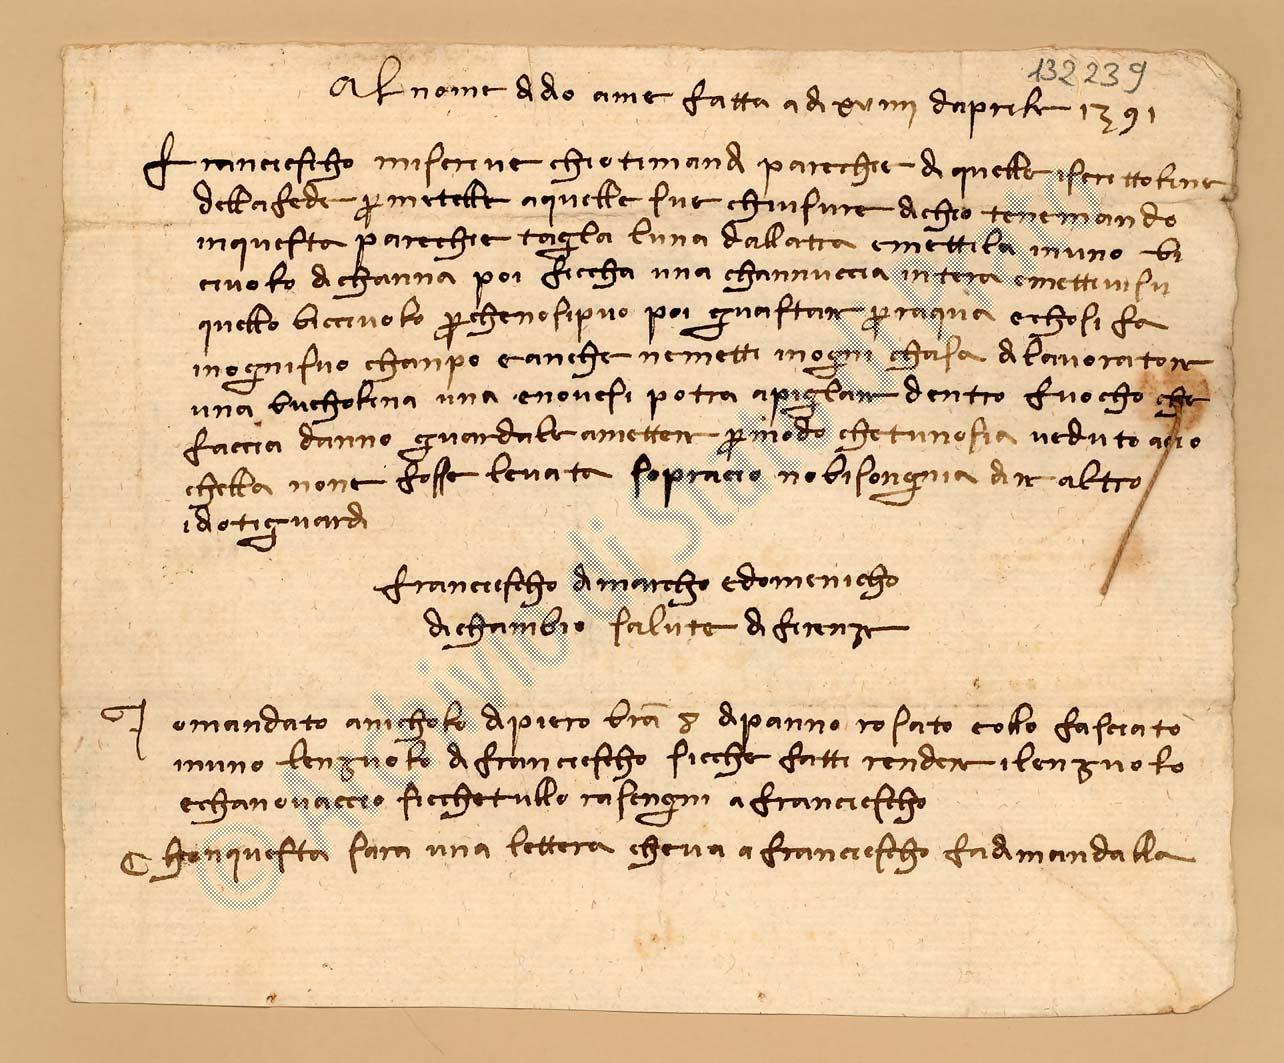 132239
Al nome di dio ame fatta a di xviiii d'aprile 1391
Franciescho mi scrive chio ti mandi parechie di quelle iscrittoline
della fede per metelle a quelle sue chiusure di chio te ne mando
in questa parechie taglia l'una dall'atra e mettila in uno bi
ciuolo di channa poi ficcha una channuccia in tera e mettivi su
quello bicciuolo per che no si puo poi guastar per raqua e chosi fa
in ogni suo chanpo e anche ne metti in ogni chasa di lavoratore
una bucholina una e no vesi potra apiglar dentro fuocho che
faccia danno guardale a metter per modo che tu no sia veduto acio
chella none fosse levata sopra cio no bisongnia dir altro
idio ti guardi
Franciescho di marcho e domenicho
di chambio salute di firenze
Io mandato a nicholo di piero bra 8 di panno rosato e ollo fasciato
in uno lenzuolo di franciescho sicche fatti rendere i lenzuolo
e chanovaccio sicche tullo rasengni a franciescho
C Chon questa sara una lettera che va a franciescho fa di mandalla
© Archivio di Stato di